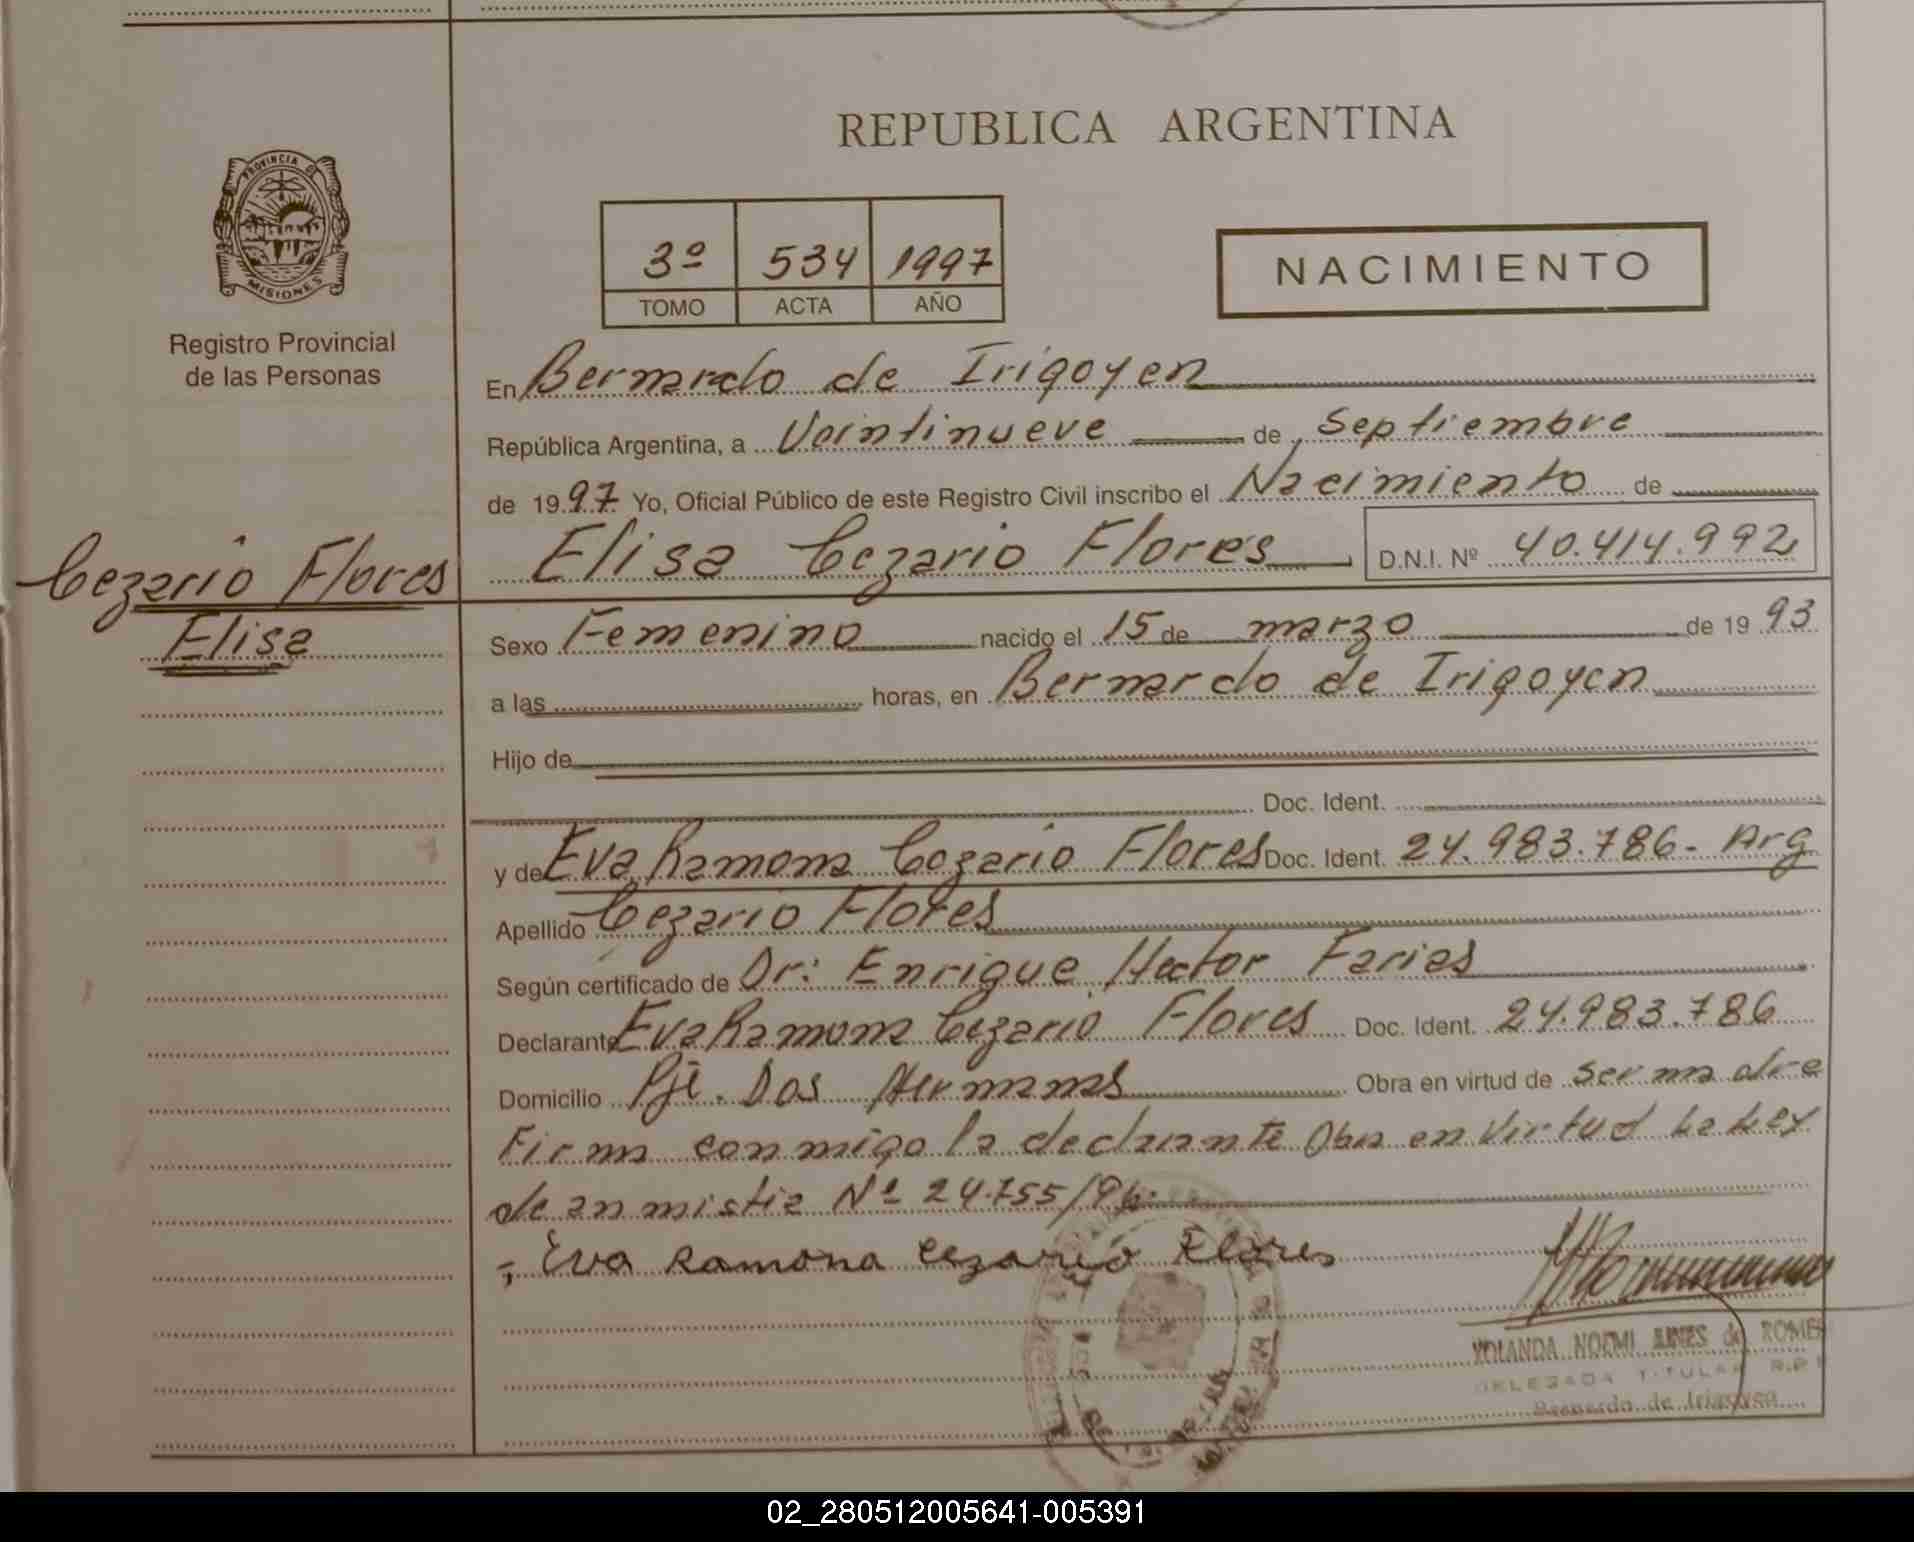 REPUBLICA ARGENTINA
PROVINCIA DE
MISIONES
Registro Provincial
de las Personas
3º 534 1997
TOMO ACTA AÑO
NACIMIENTO
En Bernardo de Irigoyen
República Argentina, a Veintinueve de Septiembre
de 1997 Yo, Oficial Público de este Registro Civil inscribo el Nacimiento de
Elisa Cezario Flores D.N.I. Nº 40.414.992
Cezario Flores
Elisa
Sexo Femenino nacido el 15 de marzo de 1993
a las horas, en Bernardo de Irigoyen
Hijo de
Doc. Ident.
y de Eva Ramona Cezario Flores Doc. Ident. 24.983.786- Arg
Apellido Cezario Flores
Según certificado de Dr: Enrique Hector Farias
Declarante Eva Ramona Cezario Flores Doc. Ident. 24.983.786
Domicilio Pje. Dos Hermanas Obra en virtud de ser madre
Firma conmigo la declarante Obra en virtud La Ley
de anmistia Nº 24.755/96.
Eva Ramona Cezario Flores
YOLANDA NOEMI de ROME
DELEGADA TITULAR R.P.
Bernardo de Irigoyen
02_280512005641-005391